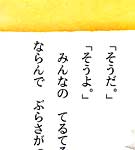 「そうだ。」
「そうよ。」
みんなの てるてる
ならんで ぶらさが